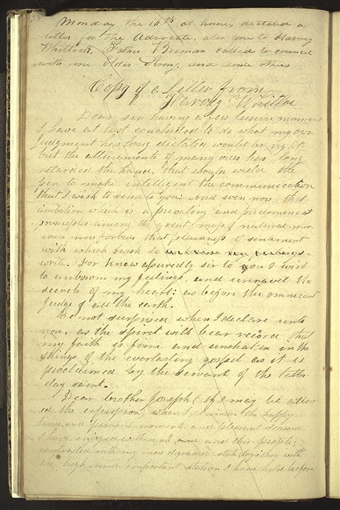 Monday the 16th at home, dictated a
letter for the Advocate, also one to Harvey
Whitlock, Father Beeman called to council
with me Elder Strong and some others
Copy of a Letter from
Harvey Whitlock
Dear sir having a few leisure moments
I have at last concluded to do what my own
judgment has long dictated would be right
but the allurements of many vices has long
retarded the hand, that should wield the
pen to make intelligent the communication
that I wish to send to you: And even now that
ambition which is a prevailing and predominant
principles among the great mass of natural men
even now forbids that plainness of sentiment
with which I wish to
write. For know assuredly sir to you I wish
to unbosom my feelings, and unravel the
secrets of my heart: as before the omnicient
Judge of all the earth.
Be not surprised when I declare unto
you, as the spirit will bear record that
my faith is firm and unshaken in the
things of the everlasting gospel as it is
proclaimed by the servants of the latter
day saints.
Dear brother Joseph (if I may be allow
ed the expression) when I consider the happy
times and peaceful moments, and pleasant seasons
I have enjoyed with you, and this people;
contrasted with my now degraded state; together with
the high, and important station I have held before